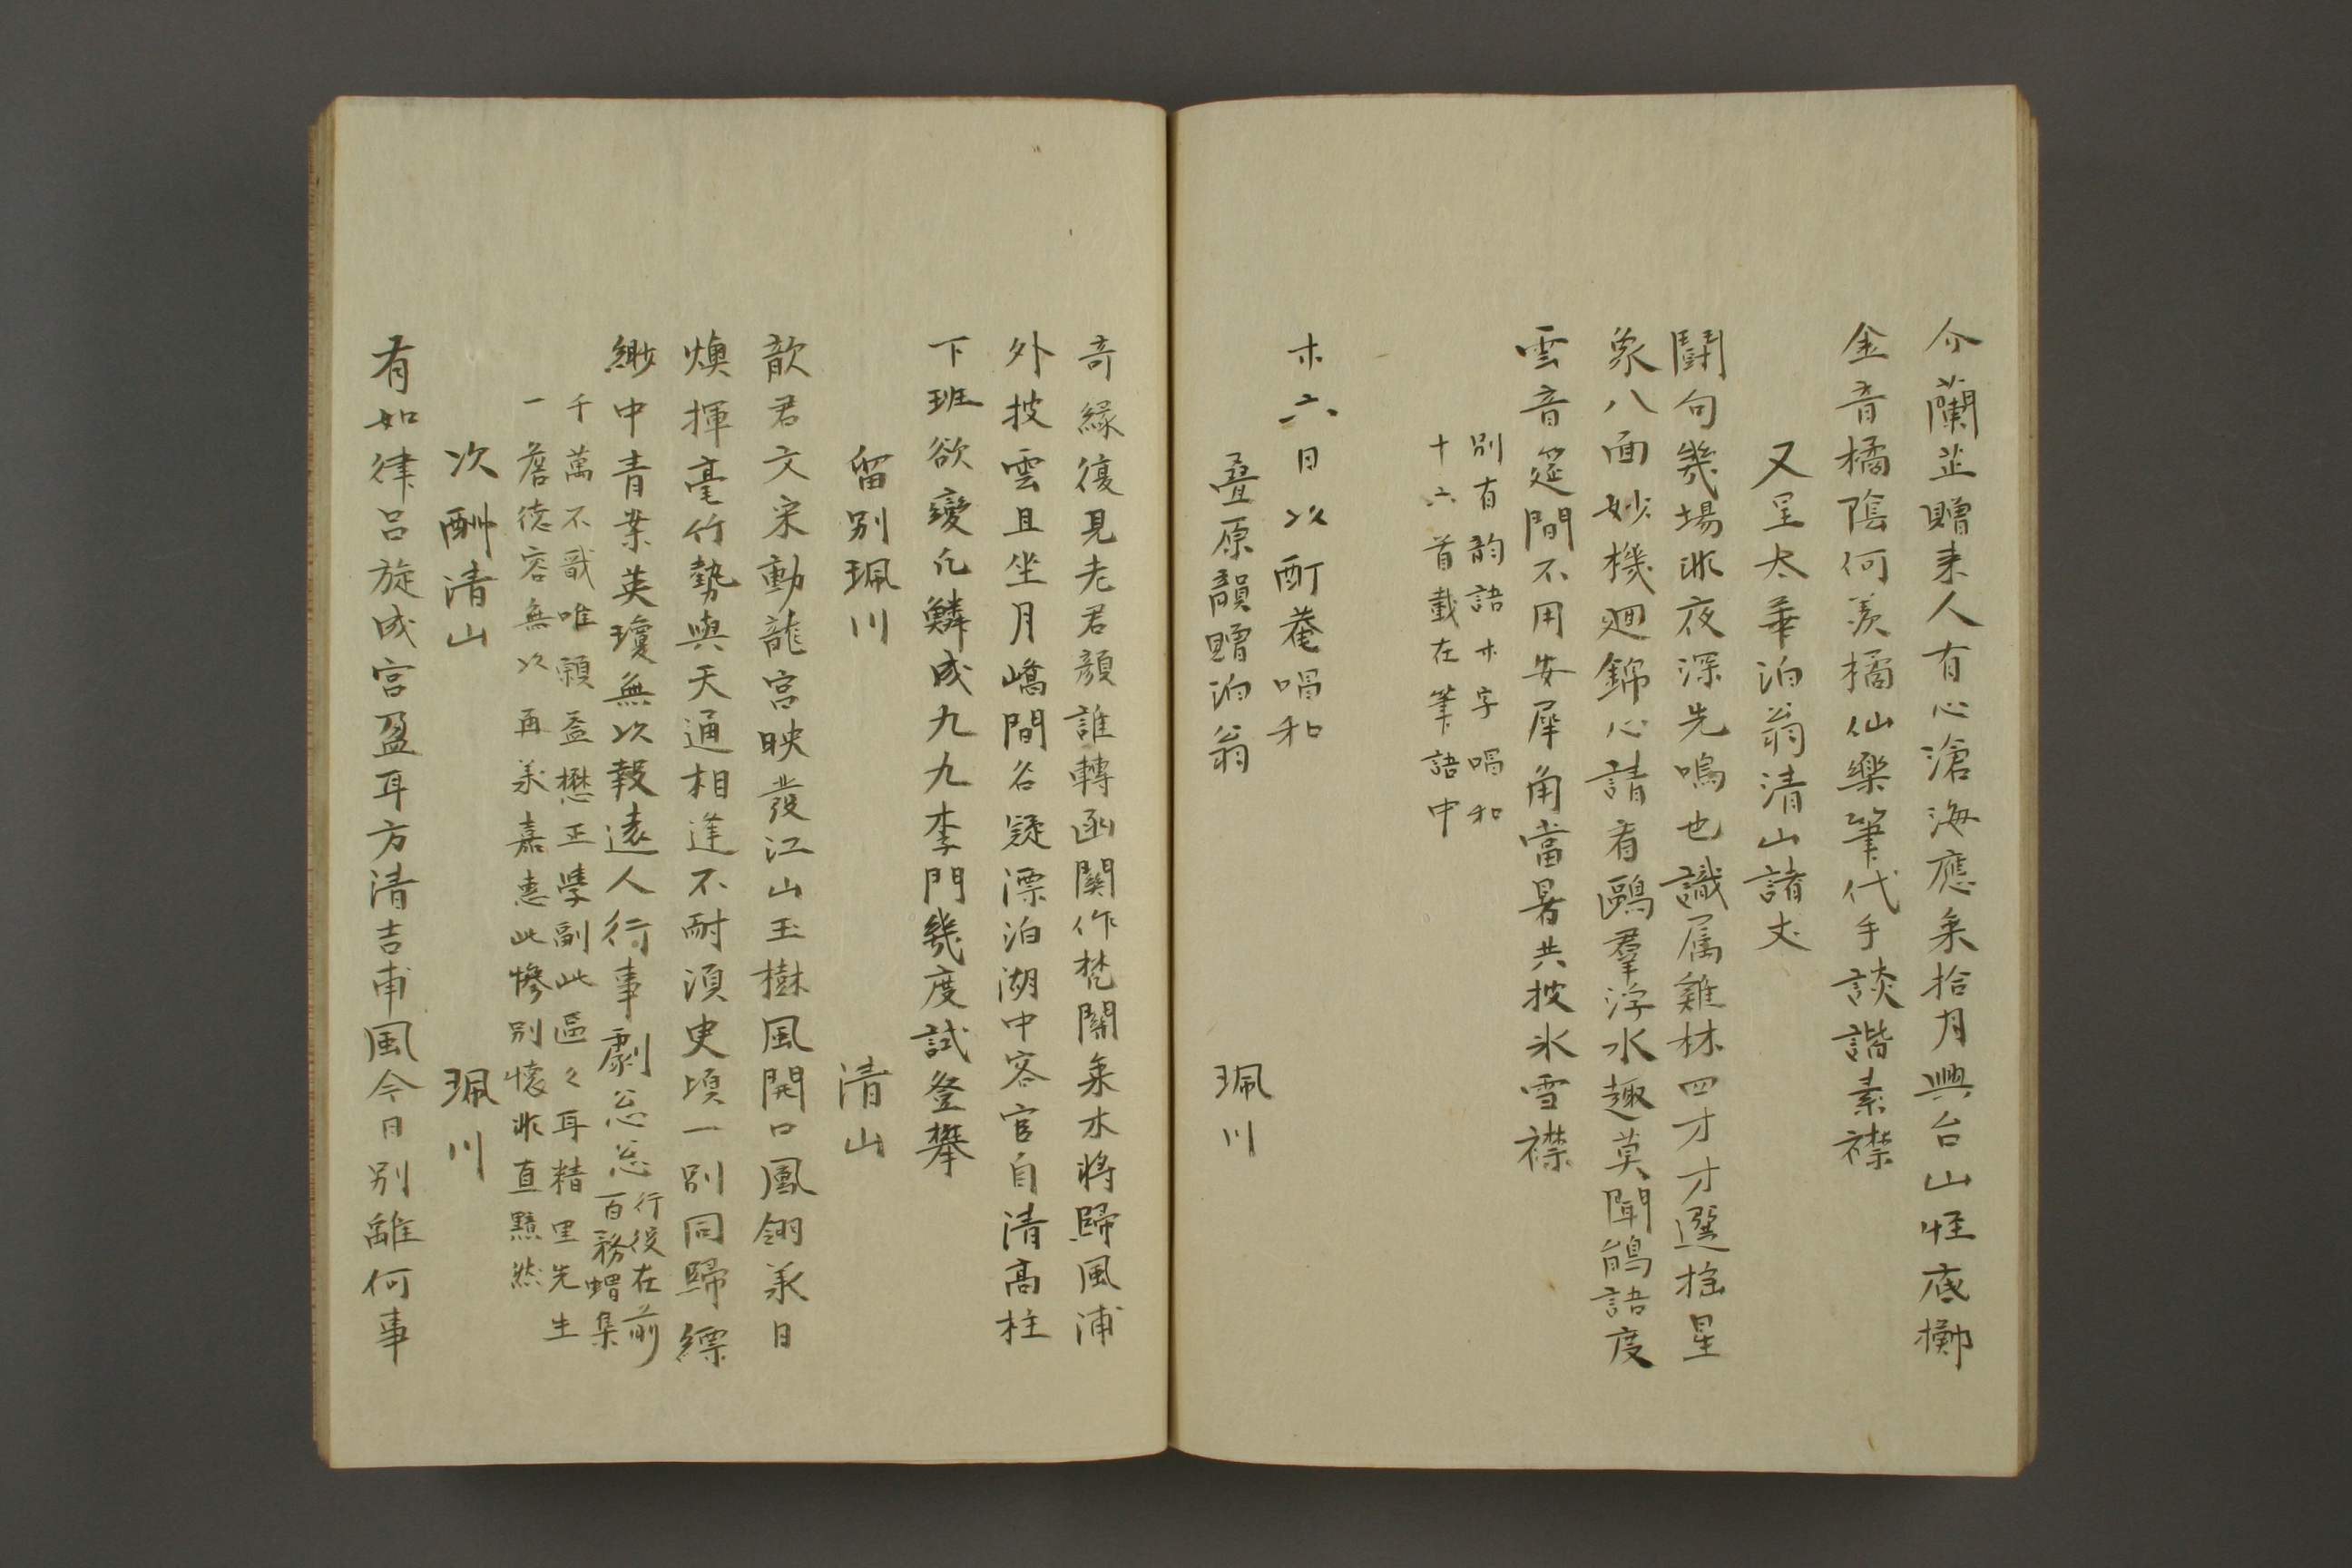 介蘭芷贈来人有心滄海應乘拾月興台山恠底擲
金音橘陰何羨橘仙樂筆代手談諧素襟
又呈太華泊翁清山諸丈
鬪句幾場非夜深先鳴也識属雞林四才才選揺星
象八面妙機廻錦心請看鷗羣浮水趣莫聞鵑語度
雲音筵間不用安犀角當暑共披氷雪襟
別有韵語廿字唱和
十六首載在筆語中
廿六日以酊菴唱和
疊原韻贈泊翁　珮川
竒緣復見老君顏誰轉函關作梵關乘木將歸風浦
外披雲且坐月嶠間谷疑漂泊湖中客官自清高柱
下班欲變化鱗成九九李門幾度試登攀
留別珮川　清山
歆君文宋動龍宮映發江山玉樹風開口鳳翎承日
煥揮毫竹勢與天通相逢不耐須臾頃一別同歸縹
緲中青業英瓊無以報遠人行事劇怱怱
行役在前
百務蝟集
千萬不戩唯願益懋正學副此區々耳精里先生
一詹德容無以再承嘉惠此慘別懷非直黯然
次酬清山　珮川
有如律呂旋成宮盈耳方清吉甫風今日別離何事